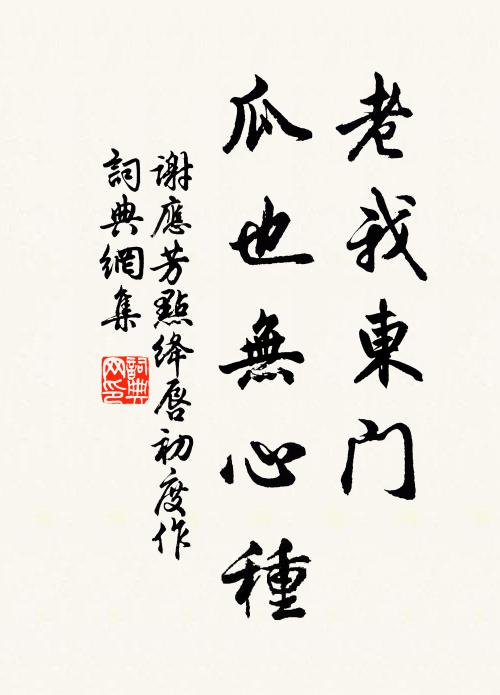 老我東門
瓜也無心種
謝應芳點絳唇初度作
詞典網集
詞典
网印